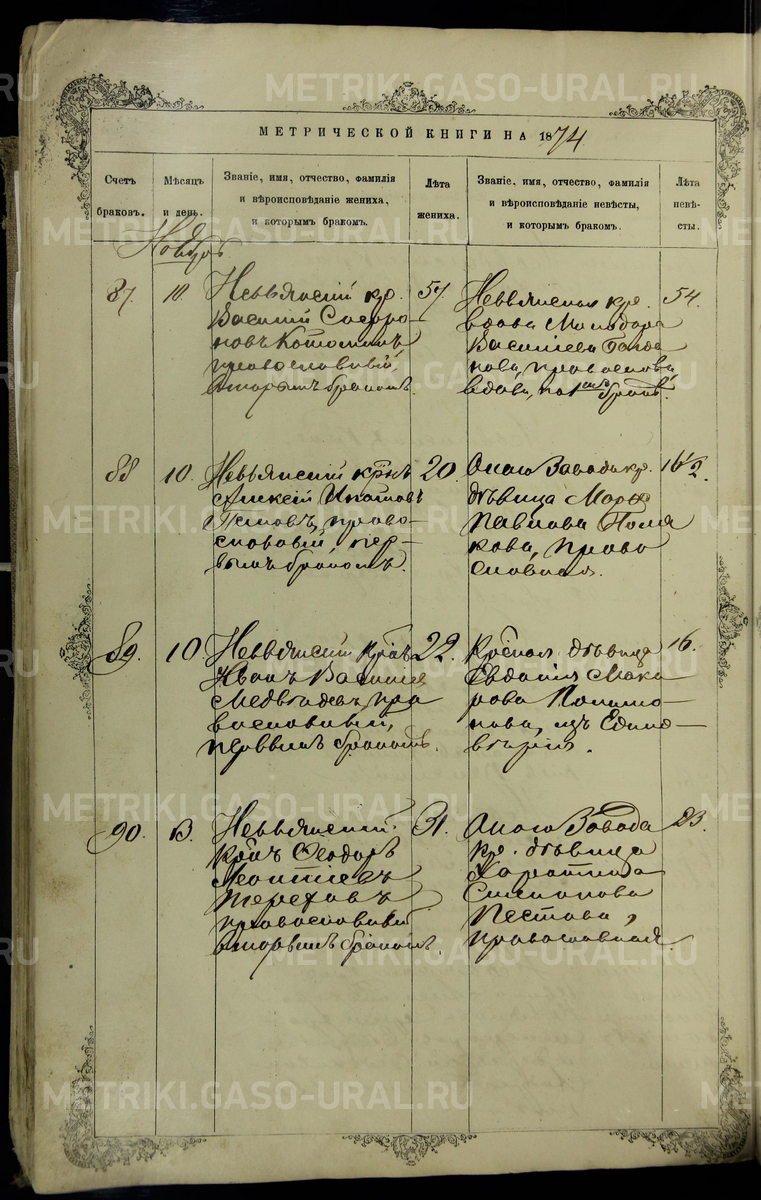 МЕТРИЧЕСКОЙ КНИГИ НА 1874
Счетъ браковъ.
Мѣсяцъ и день.
Званіе, имя, отчество, фамилія
и вѣроисповѣданіе жениха,
и которымъ бракомъ.
Лѣта жениха.
Званіе, имя, отчество, фамилія
и вѣроисповѣданіе невѣсты,
и которымъ бракомъ.
Лѣта невѣ-
сты.
87
10
Невьянскій кр.
Василій Софро-
новъ
православный,
вторымъ бракомъ.
57
Невьянская кр.
вдова
Василіева
православ.
вдова, бракъ.
54.
88
10.
Невьянскій крнъ
Алексѣй Игнатовъ
право-
славный, пер-
вымъ бракомъ.
20.
Онаго Завода кр.
дѣвица Марѳа
Павлова Поля
кова, право
славная.
16 1/2
89.
10
Невьянскій крнъ
Иванъ Василіев
Медвѣдевъ, пра
вославный,
первымъ бракомъ.
22.
дѣвица
Евдокія Мака
рова
нова, изъ Едино-
вѣрія.
16.
90.
13.
Невьянскій
крнъ Ѳеодоръ
Леонтіевъ
Тереховъ
православный
вторымъ бракомъ.
31.
Онаго Завода
кр. дѣвица
Харитина
Пестова,
православная
23.
METRIKI.GASO-URAL.RU